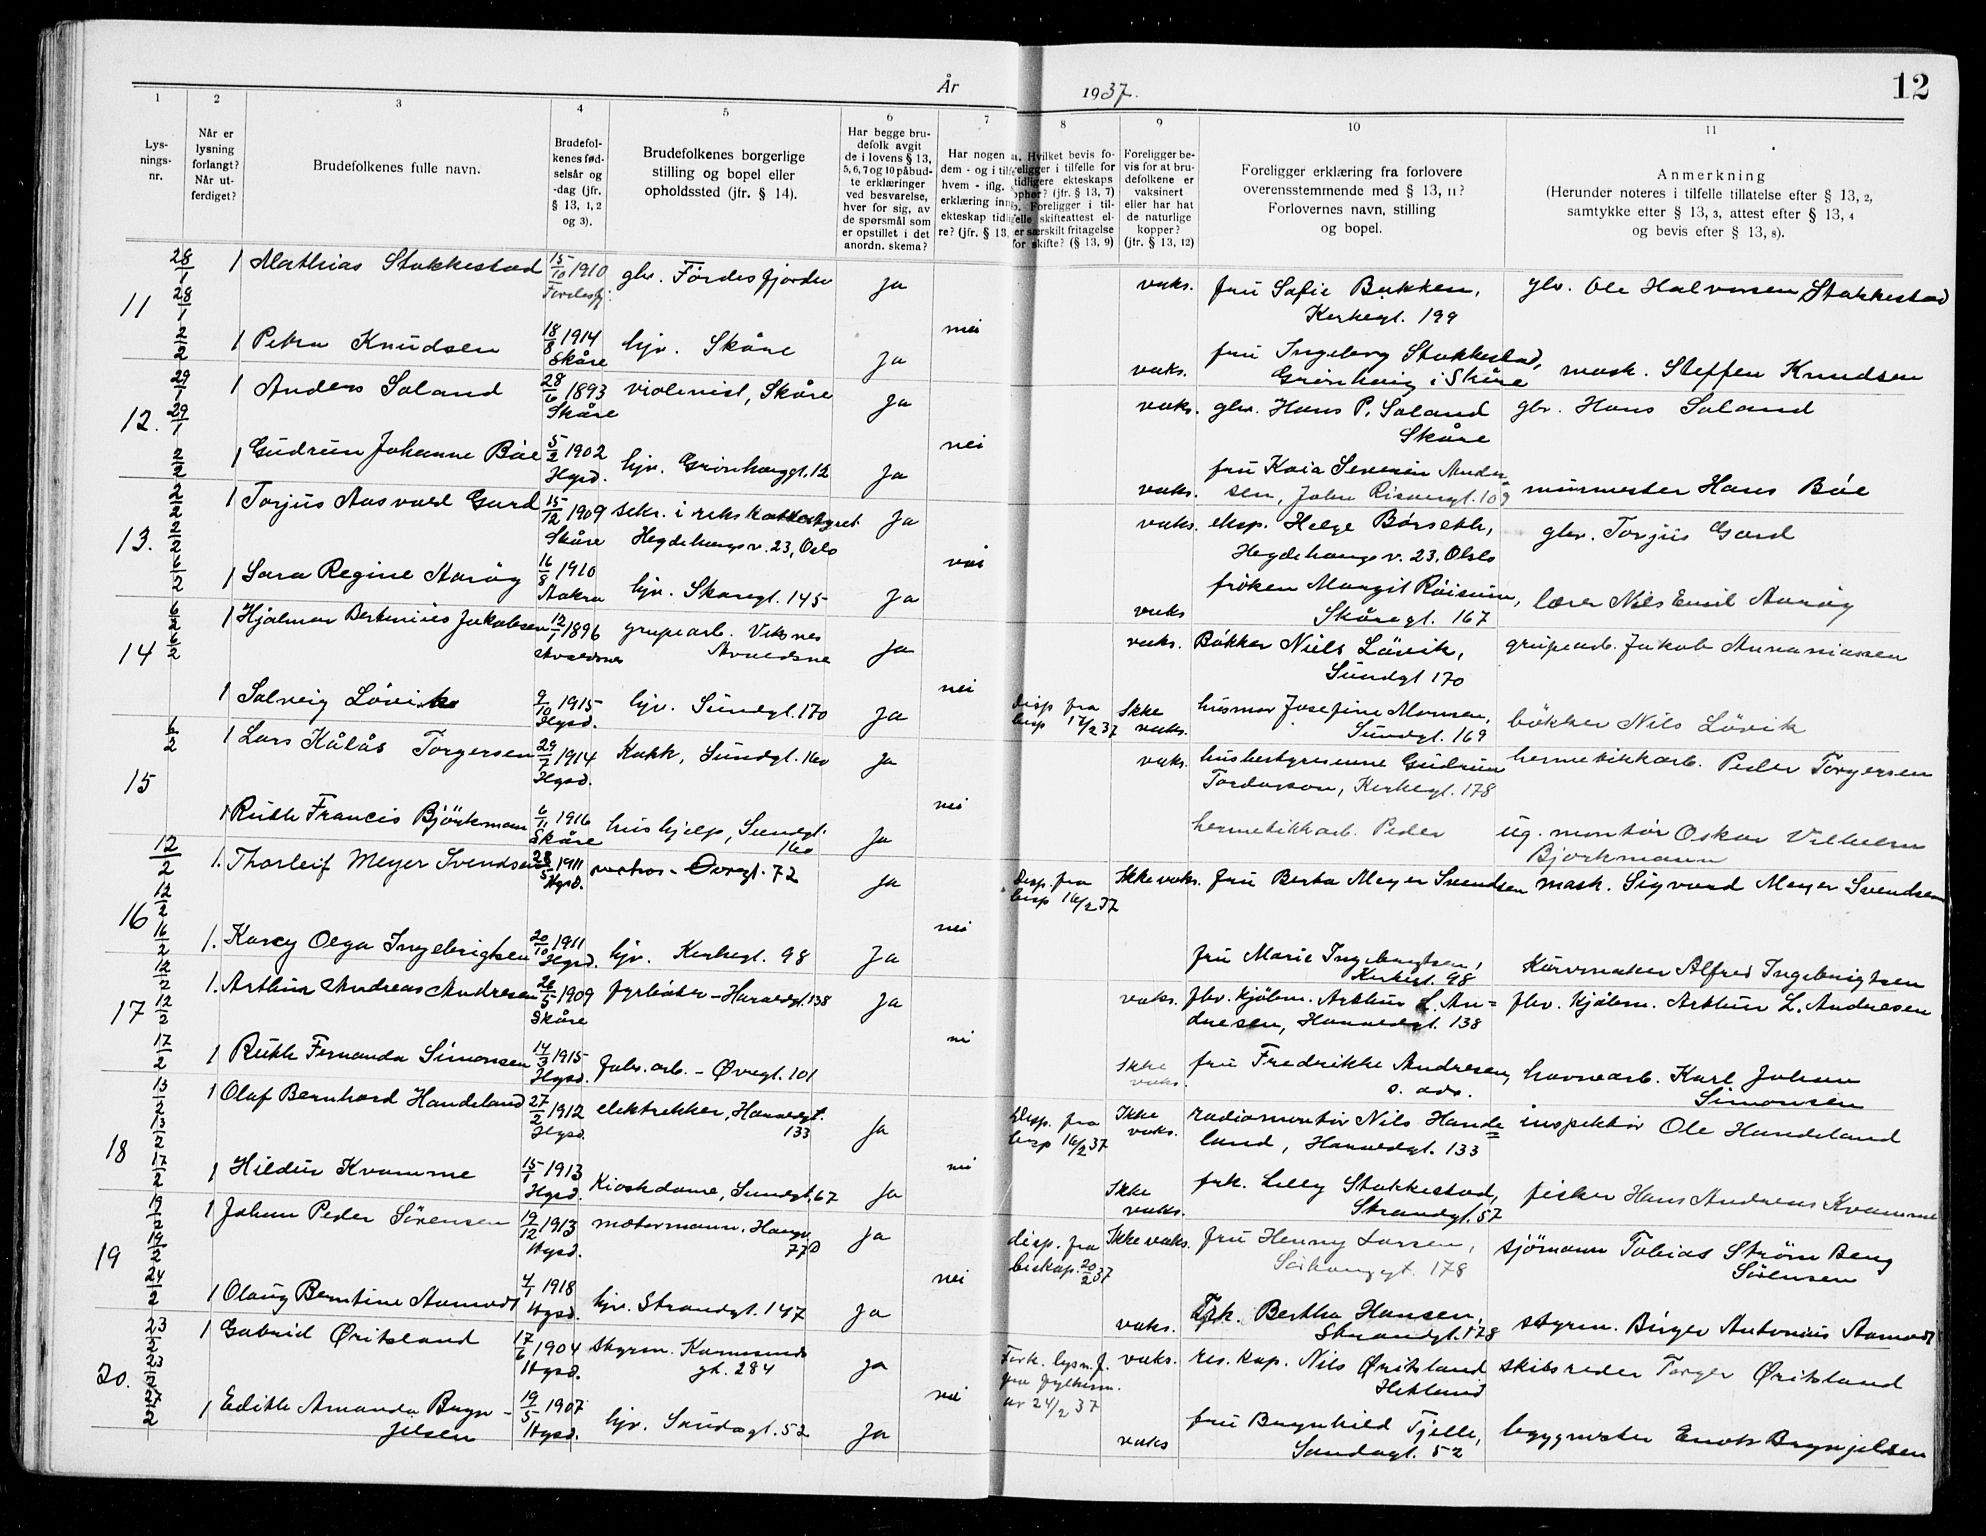 År 1937.
12
1 2 3 4 5 6 7 8 9 10 11
Lys-
nings-
nr.
Når er
lysning
forlangt?
Når ut-
ferdiget?
Brudefolkenes fulle navn.
Brudefol-
kenes fød-
selsår og
-dag (jfr.
§ 13, 1, 2
og 3).
Brudefolkenes borgerlige
stilling og bopel eller
opholdssted (jfr. § 14).
Har begge bru-
defolk avgit
de i lovens § 13,
5, 6, 7 og 10 påbud-
te erklæringer
ved besvarelse,
hver for sig, av
de spørsmål som
er opstillet i det
anordn. skema?
Har nogen a
dem - og i tilf
hvem - iflg.
erklæring inng
ekteskap tidlig
re? (jfr. § 13,
a. Hvilket bevis fo-
religger i tilfelle for
tidligere ekteskaps
ophør? (jfr. § 13, 7)
b. Foreligger i til-
felle skifteattest el-
er særskilt fritagelse
for skifte? (§ 13, 9)
Foreligger be-
vis for at bru-
defolkene er
vaksinert
eller har hat
de naturlige
kopper?
(jfr. § 13, 12)
Foreligger erklæring fra forlovere
overensstemmende med § 13, 11?
Forlovernes navn, stilling
og bopel.
Anmerkning
(Herunder noteres i tilfelle tillatelse efter § 13, 2,
samtykke efter § 13, 3, attest efter § 13, 4
og bevis efter § 13, 8).
11 28/1 28/1 2/2
1 Mathias Stakkestad 15/10 1910 gbr. Fördesfjorden Ja vaks. fru Sofie Bakken, gbr. Ole Halvorsen Stakkestad
Fördesfj. Kirkegt. 199
1 Petra Knudsen 18/8 1914 hjv. Skåre Ja nei vaks. fru Ingeborg Stakkestad, mask. Steffen Knudsen
Skåre Grønhaug i Skåre
12. 29/1 29/1 2/2
1 Anders Soland 28/6 1893 violinist, Skåre Ja vaks. gbr. Hans P. Soland gbr. Hans Soland
Skåre Skåre
1 Gudrun Johanne Böe 5/2 1902 hjv. Grönhauggt. 12 Ja nei vaks. fru Kaia Severin Ander- murmester Hans Böe
Hgsd. sen, John Risøengt. 109
13. 2/2 2/2 6/2
1 Torjus Aasvald Gard 15/12 1909 sekr. i riksskattestyret Ja vaks. eksp. Helge Börseth, gbr. Torjus Gard
Skåre Hegdehaugsv. 23, Oslo Hegdehaugsv. 23, Oslo
1 Sara Regine Aaröy 16/8 1910 hjv. Skåregt. 145 Ja nei vaks frøken Margit Röisum, lærer Nils Emil Aaröy
Aakra Skåregt. 167
14 6/2 6/2
1 Hjalmar Bertinius Jakobsen 12/1 1896 grubearb. Viksnes Ja vaks. Bøkker Niels Lövik, grubearb. Jakob Annaniassen
Avaldsnes Avaldsnes Sundgt 170
1 Solveig Lövik 9/10 1915 hjv. Sundgt. 170 Ja nei Disp fra Ikke husmor Josefine Monsen, bökker Nils Lövik
Hgsd. bisp 16/2 37 vaks. Sundgt. 169
15 6/2
1 Lars Kålås Torgersen 29/7 1914 Kokk, Sundgt. 160 Ja vaks. husbestyrerinne Gudrun hermetikkarb. Peder Torgersen
Hgsd. Tordarson, Kirkegt. 178
1 Ruth Francis Björkman 6/11 1916 hushjelp, Sundgt. Ja nei hermetikkarb. Peder ug. montör Oskar Vilhelm
Skåre 160 Bjorkmann
16 12/2 12/2 16/2
1. Thorleif Meyer Svendsen 28/5 1911 matros - Øvregt. 72 Ja Disp. fra Ikke vaks. Fru Berta Meyer Svendsen mask. Sigvard Meyer Svendsen
Hgsd. bisp 16/2 37
1. Karey Olga Ingebrigtsen 20/10 1911 hjv. Kirkegt. 98 Ja nei fru Marie Ingebrigtsen, Kurvmaker Alfred Ingebrigtsen
Hgsd. Kirkegt. 98
17 12/2 12/2 17/2
1. Arthur Andreas Andresen 26/5 1909 fyrböter - Haraldsgt. 138 Ja vaks. fhv. kjöbm. Arthur L. An= fhv. kjöbm. Arthur L. Andresen
Skåre dresen, Haraldsgt. 138
1 Ruth Fernanda Simonsen 14/3 1915 fabr. arb. - Øvregt. 101 nei Ikke fru Fredrikke Andresen, havnearb. Karl Johan
Hgsd. vaks. s. adr. Simonsen
18 13/2 13/2 17/2
1 Olaf Bernhard Handeland 27/2 1912 elektrikker, Haraldsgt. Ja Disp. fra Ikke radiomontör Nils Hande= inspektör Ole Handeland
Hgsd. 133 bisp 16/2 37 vaks. land, Haraldsgt. 133
1 Hildur Kvamme 15/1 1913 Kioskdame, Sundgt. 67 Ja nei Ikke frk. Lilly Stakkestad, fisker Hans Andreas Kvamme
Hgsd. vaks. Strandgt. 57
19 19/2 19/2 24/2
1 Johan Peder Sörensen 19/12 1913 motormann, Ja disp. fra Ikke vaks. fru Henny Larsen, sjömann Tobias Ström Berg
Hgsd. 77 D biskop. 20/2 37 Sörhauggt. 178 Sörensen
1 Olaug Berntine Aamodt 4/1 1918 hjv. Strandgt. 147 Ja nei vaks. Frk. Bertha Hansen, styrm. Birger Antonius Aamodt
Hgsd. Strandgt. 178
20. 23/2 23/2
1 Gabriel Øritsland 17/6 1904 styrm. Karmsunds Ja Fork. lysn. f. vaks. res. kap. Nils Øritsland skibsreder Torger Øritsland
Hgsd. gt. 284 fra fylkesm. Hetland
av 24/2 37
1 Edith Amanda Bryn- 19/5 1907 hjv. Saudagt. 52 Ja nei vaks fru Brynhild Tjelle, byggmester Enok Brynjelsen
jelsen Hgsd. Saudagt. 52